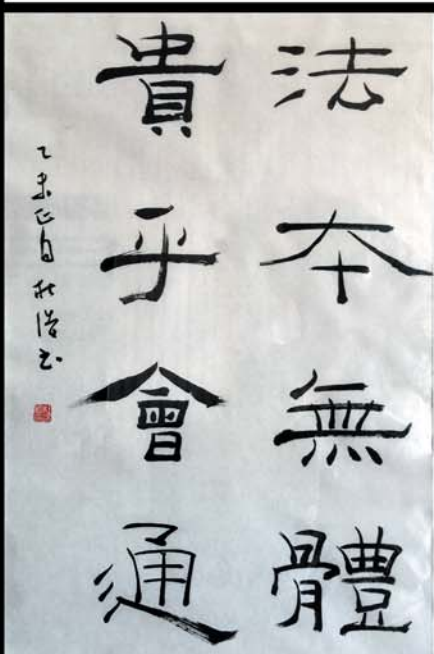 法本無體
貴乎會通
乙未正月 浩书